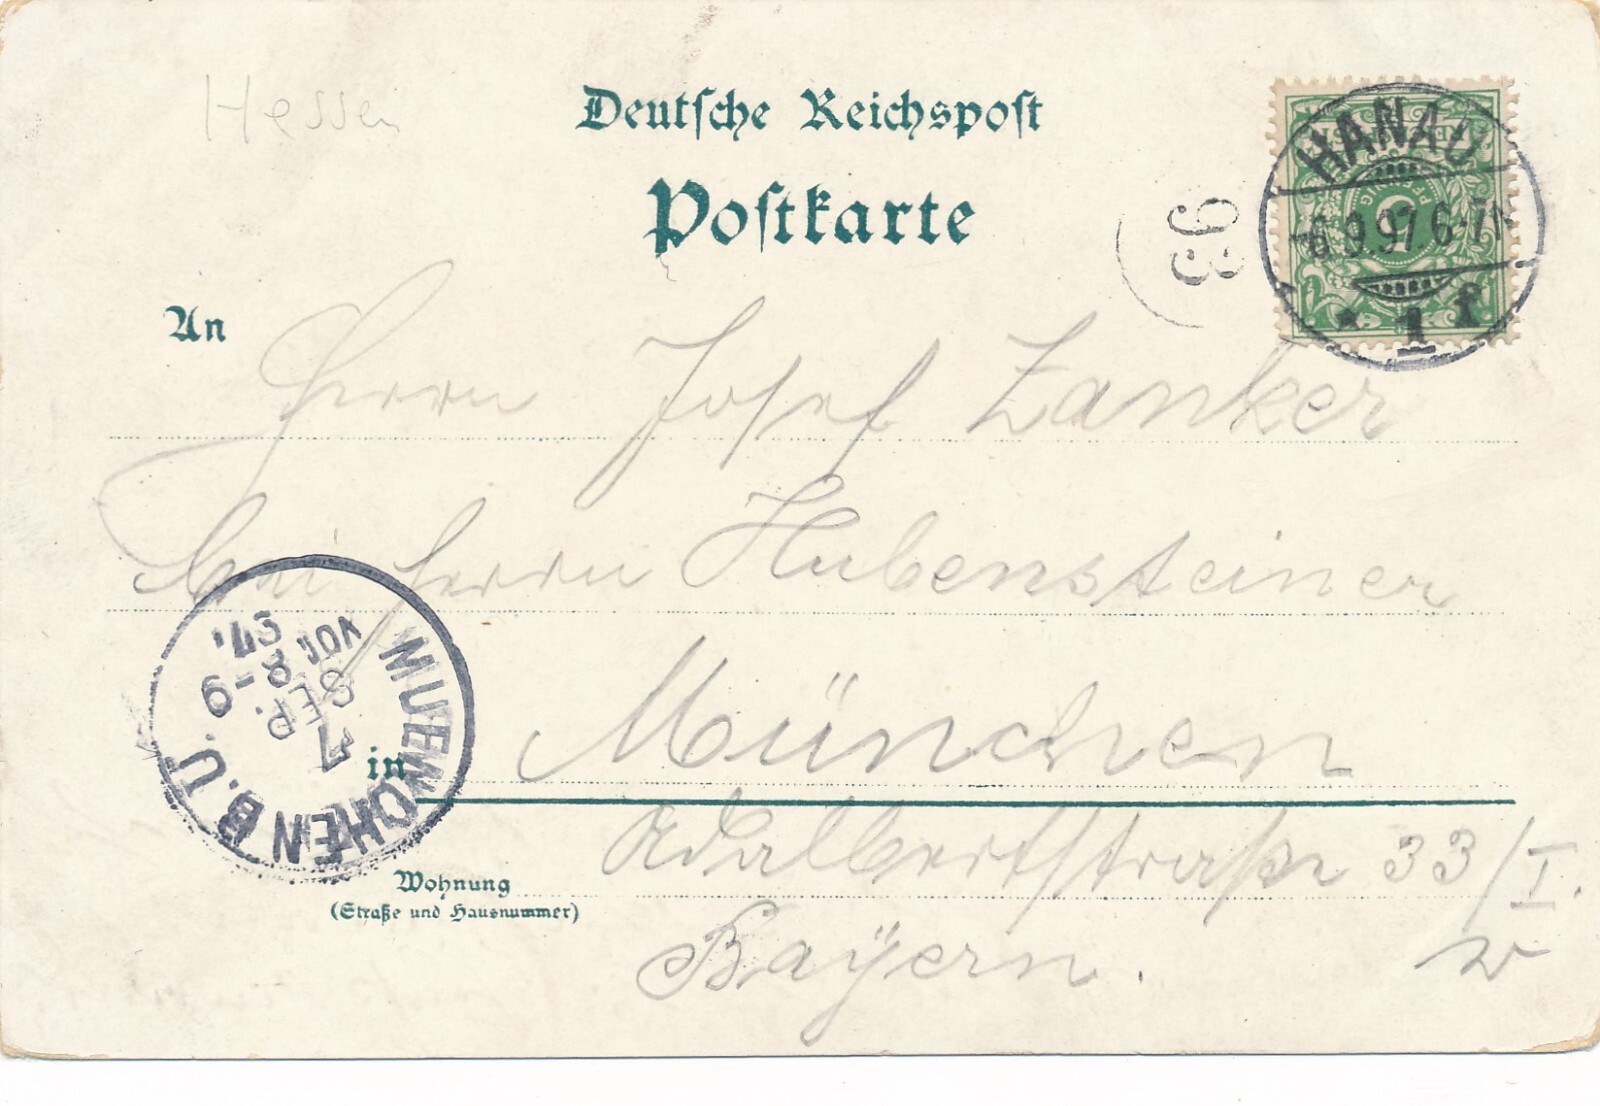 Hessen
Deutsche Reichspost
Postkarte
HANAU
6.9.97 6-7N
* 1 f
REICHSPOST
5
PFENNIG
93
An
Herrn Josef Zanker
bei Herrn Hubensteiner
in München
Wohnung
(Straße und Hausnummer)
Adalbertstraße 33/I.
Bayern.
MUENCHEN B.U.
7
SEP.
VOR 8-9
97.